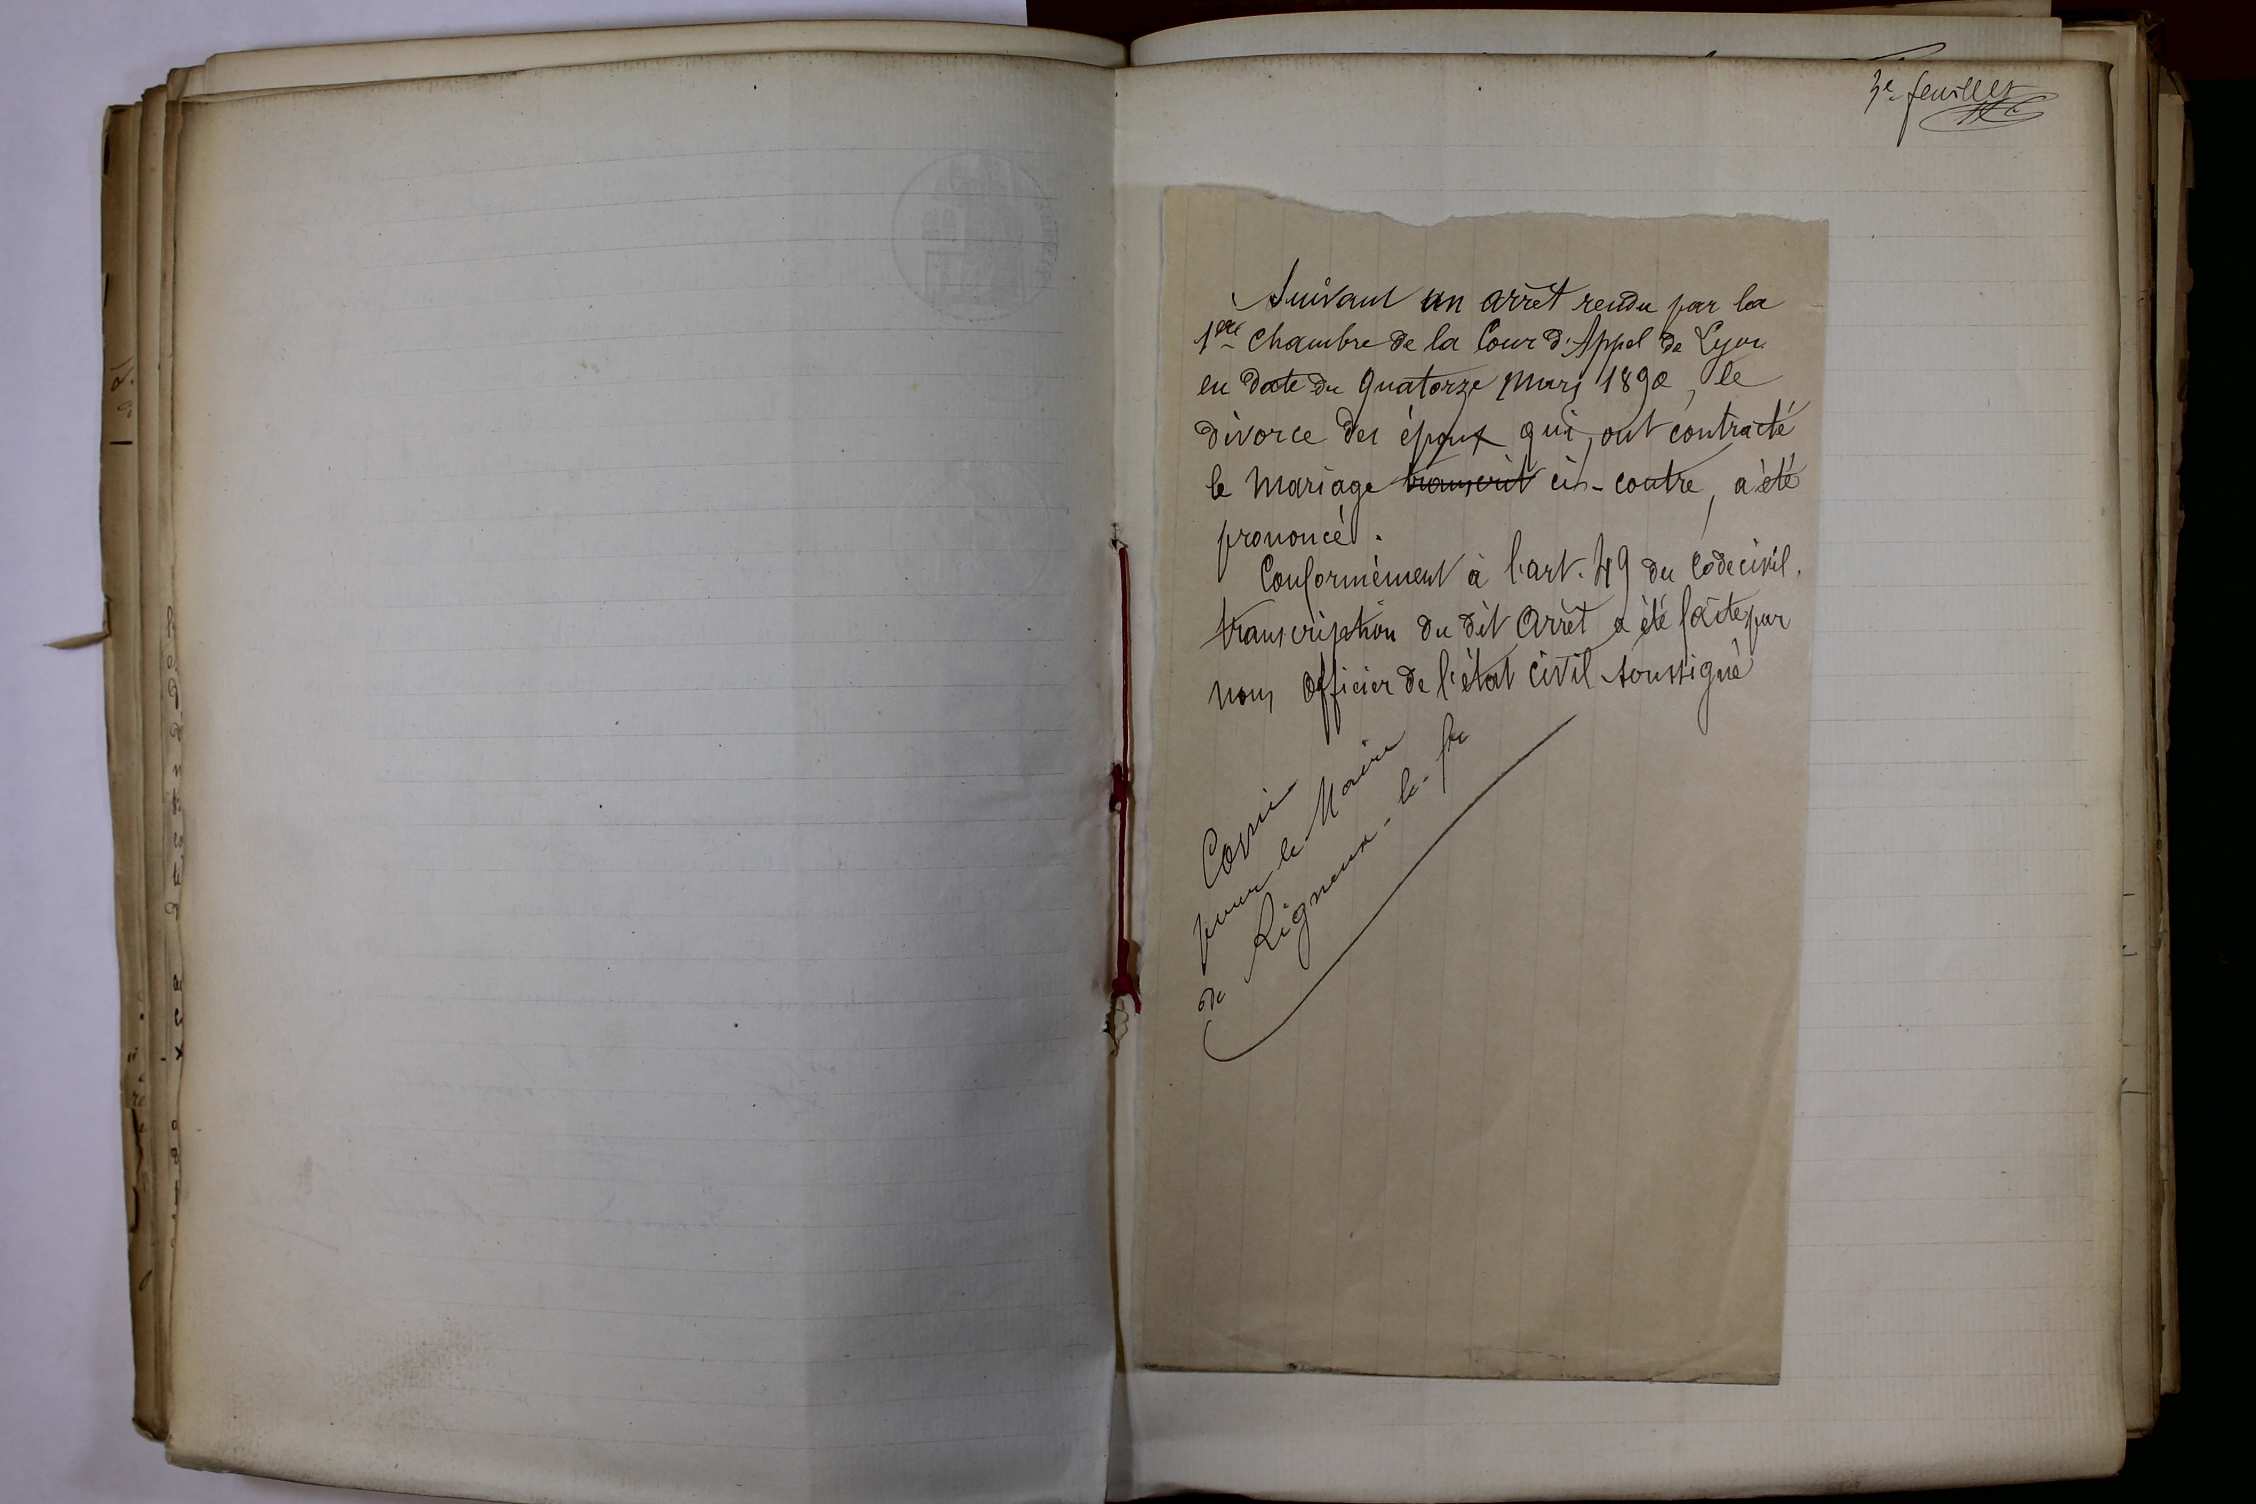 3e feuillet
Suivant un arrêt rendu par la
1ère chambre de la Cour d'Appel de Lyon
en date du quatorze Mars 1890, le
divorce des époux qui ont contracté
le mariage transcrit ci-contre, a été
prononcé.
Conformément à l'art. 49 du Code civil,
transcription du dit Arrêt a été faite par
nous Officier de l'état civil soussigné
Copie
pour le Maire
de Rigneux-le-fc